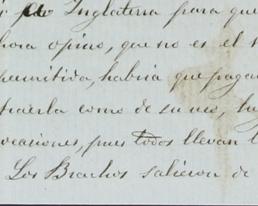 Inglaterra para que
hora opino, que no es el
permitida, habria que pagar
traerla como de su uso,
ocasiones, pues todos llevan
Los Brachos salieron de